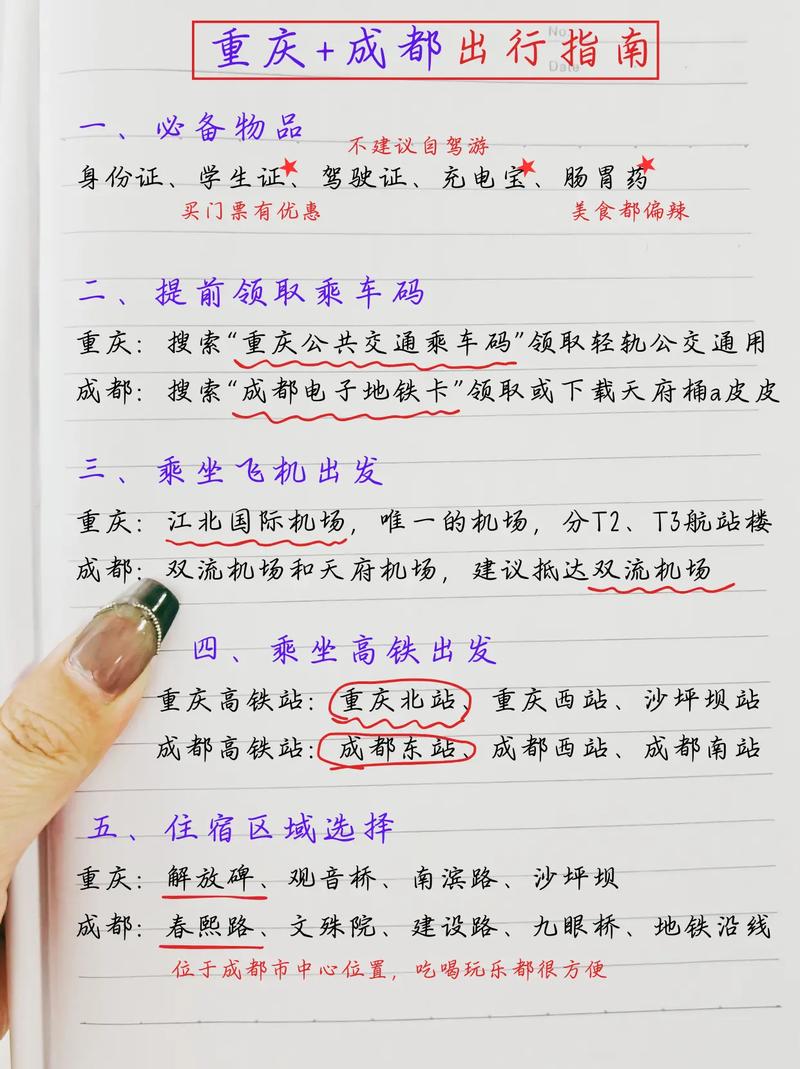 No.
Date
重庆+成都出行指南
一、必备物品
不建议自驾游
身份证、学生证、驾驶证、充电宝、肠胃药
买门票有优惠 美食都偏辣
二、提前领取乘车码
重庆：搜索“重庆公共交通乘车码”领取轻轨公交通用
成都：搜索“成都电子地铁卡”领取或下载天府桶a皮皮
三、乘坐飞机出发
重庆：江北国际机场，唯一的机场，分T2、T3航站楼
成都：双流机场和天府机场，建议抵达双流机场
四、乘坐高铁出发
重庆高铁站：重庆北站、重庆西站、沙坪坝站
成都高铁站：成都东站、成都西站、成都南站
五、住宿区域选择
重庆：解放碑、观音桥、南滨路、沙坪坝
成都：春熙路、文殊院、建设路、九眼桥、地铁沿线
位于成都市中心位置，吃喝玩乐都很方便